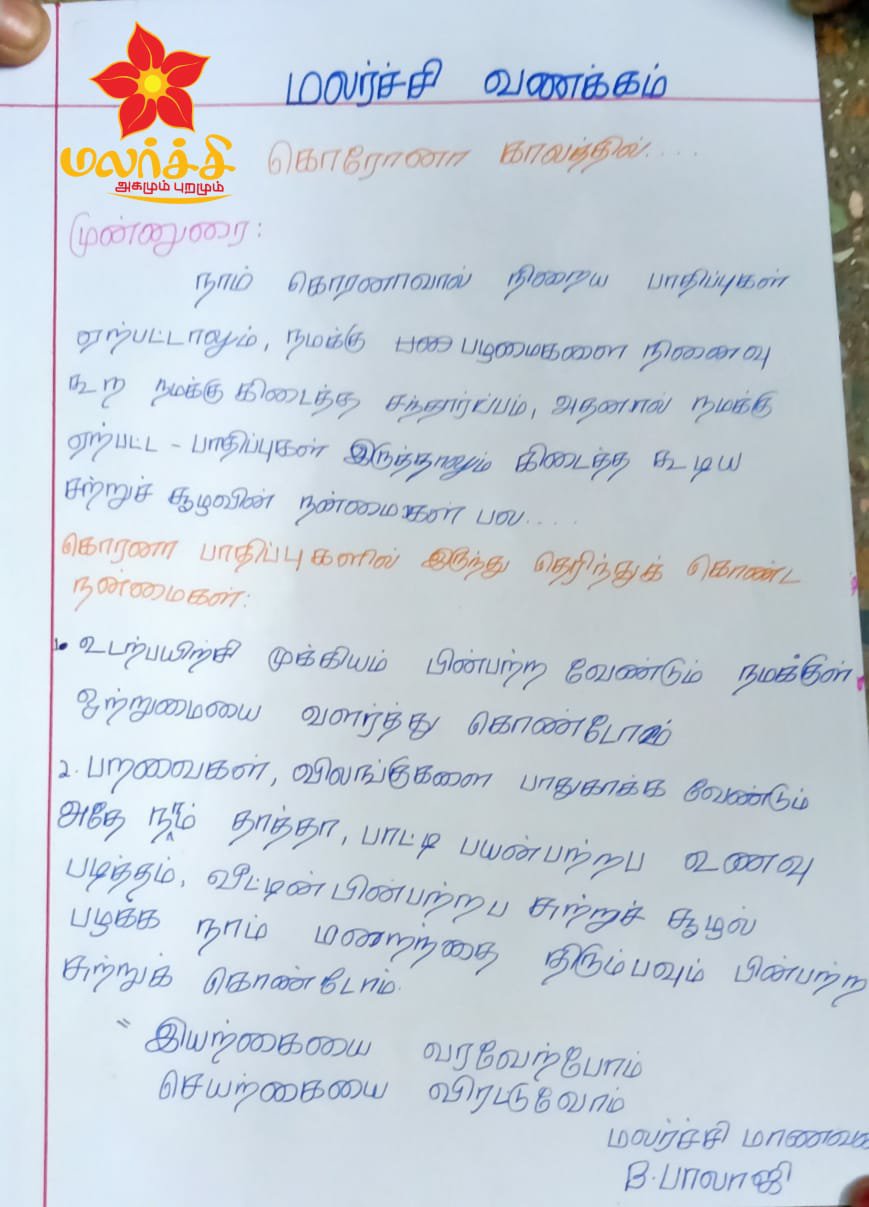 மலர்ச்சி வணக்கம்
மலர்ச்சி
அகமும் புறமும்
கொரோனா காலத்தில்....
முன்னுரை:
நாம் கொரனாவால் நிறைய பாதிப்புகள்
ஏற்பட்டாலும், நமக்கு பழமைகளை நினைவு
கூற நமக்கு கிடைத்த சந்தார்ப்பம், அதனால் நமக்கு
ஏற்பட்ட - பாதிப்புகள் இருந்தாலும் கிடைத்த கூடிய
சுற்றுச் சூழலின் நன்மைகள் பல....
கொரனா பாதிப்புகளில் இருந்து தெரிந்துக் கொண்ட
நன்மைகள்:
1. உடற்பயிற்சி முக்கியம் பின்பற்ற வேண்டும் நமக்குள்
ஒற்றுமையை வளர்த்து கொண்டோம்
2. பறவைகள், விலங்குகளை பாதுகாக்க வேண்டும்
அதே நாம் தாத்தா, பாட்டி பயன்பற்றிய உணவு
படித்தம், வீட்டின் பின்பற்றிய சுற்றுச் சூழல்
பழக்க நாம் மறந்ததை திரும்பவும் பின்பற்ற
சுற்றுக் கொண்டோம்.
" இயற்கையை வரவேற்போம்
செயற்கையை விரட்டுவோம்
மலர்ச்சி மாணவன்
B.பாலாஜி